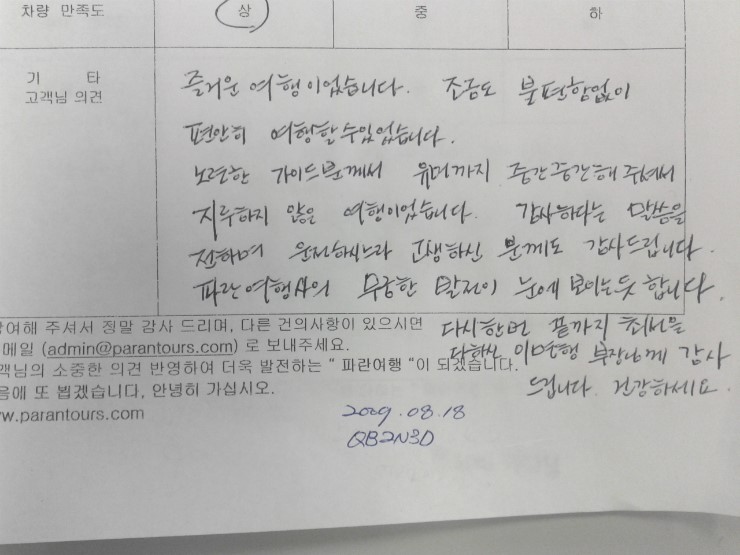 차량 만족도 상 중 하
기 타
고객님 의견
즐거운 여행이었습니다. 조금도 불편함없이
편안히 여행할 수 있었습니다.
노련한 가이드분께서 유머까지 중간중간해 주셔서
지루하지 않은 여행이었습니다. 감사하다는 말씀을
전하며 운전하시느라 고생하신 분께도 감사드립니다.
파란여행사의 무궁한 발전이 눈에 보이는듯 합니다.
다시한번 끝까지 최선을
다하신 부장님께 감사
드립니다. 건강하세요.
참여해 주셔서 정말 감사 드리며, 다른 건의사항이 있으시면
메일 (admin@parantours.com) 로 보내주세요.
객님의 소중한 의견 반영하여 더욱 발전하는 " 파란여행 "이 되겠습니다.
음에 또 뵙겠습니다, 안녕히 가십시오.
w.parantours.com
2009.08.18
QB2N3D